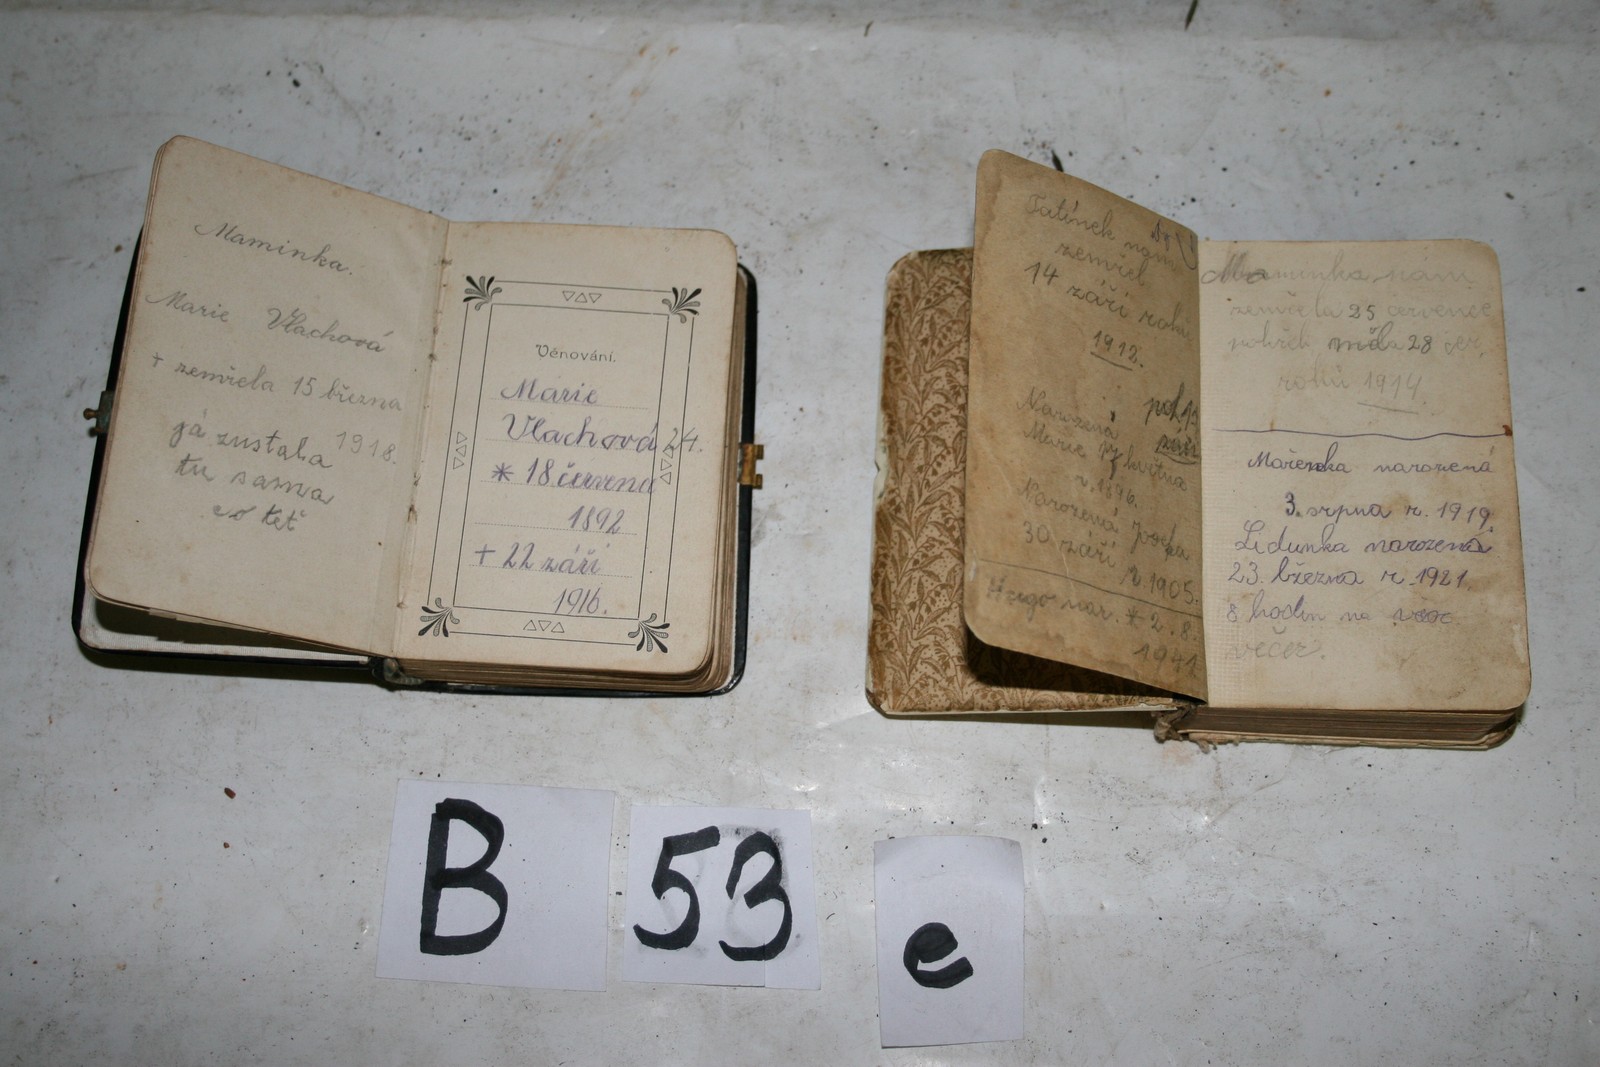 Maminka.
Marie Vlachová
+ zemřela 15 března
1918.
já zustala
tu sama
Věnování.
Marie
Vlachová 24.
* 18 června
1892
+ 22 září
1916.
Tatínek nam
zemřel
14 září roku
1912.
Narozená
Marie 17 května
r. 1896.
Narozená
30 září r. 1905.
nar. * 2. 8.
1941
Maminka nám
zemřela 25 července
pohřeb měla 28 čer.
roku 1914.
Mařenka narozená
3. srpna r. 1919.
Lidunka narozená
23. března r. 1921.
8 hodin na
večer.
B 53 e